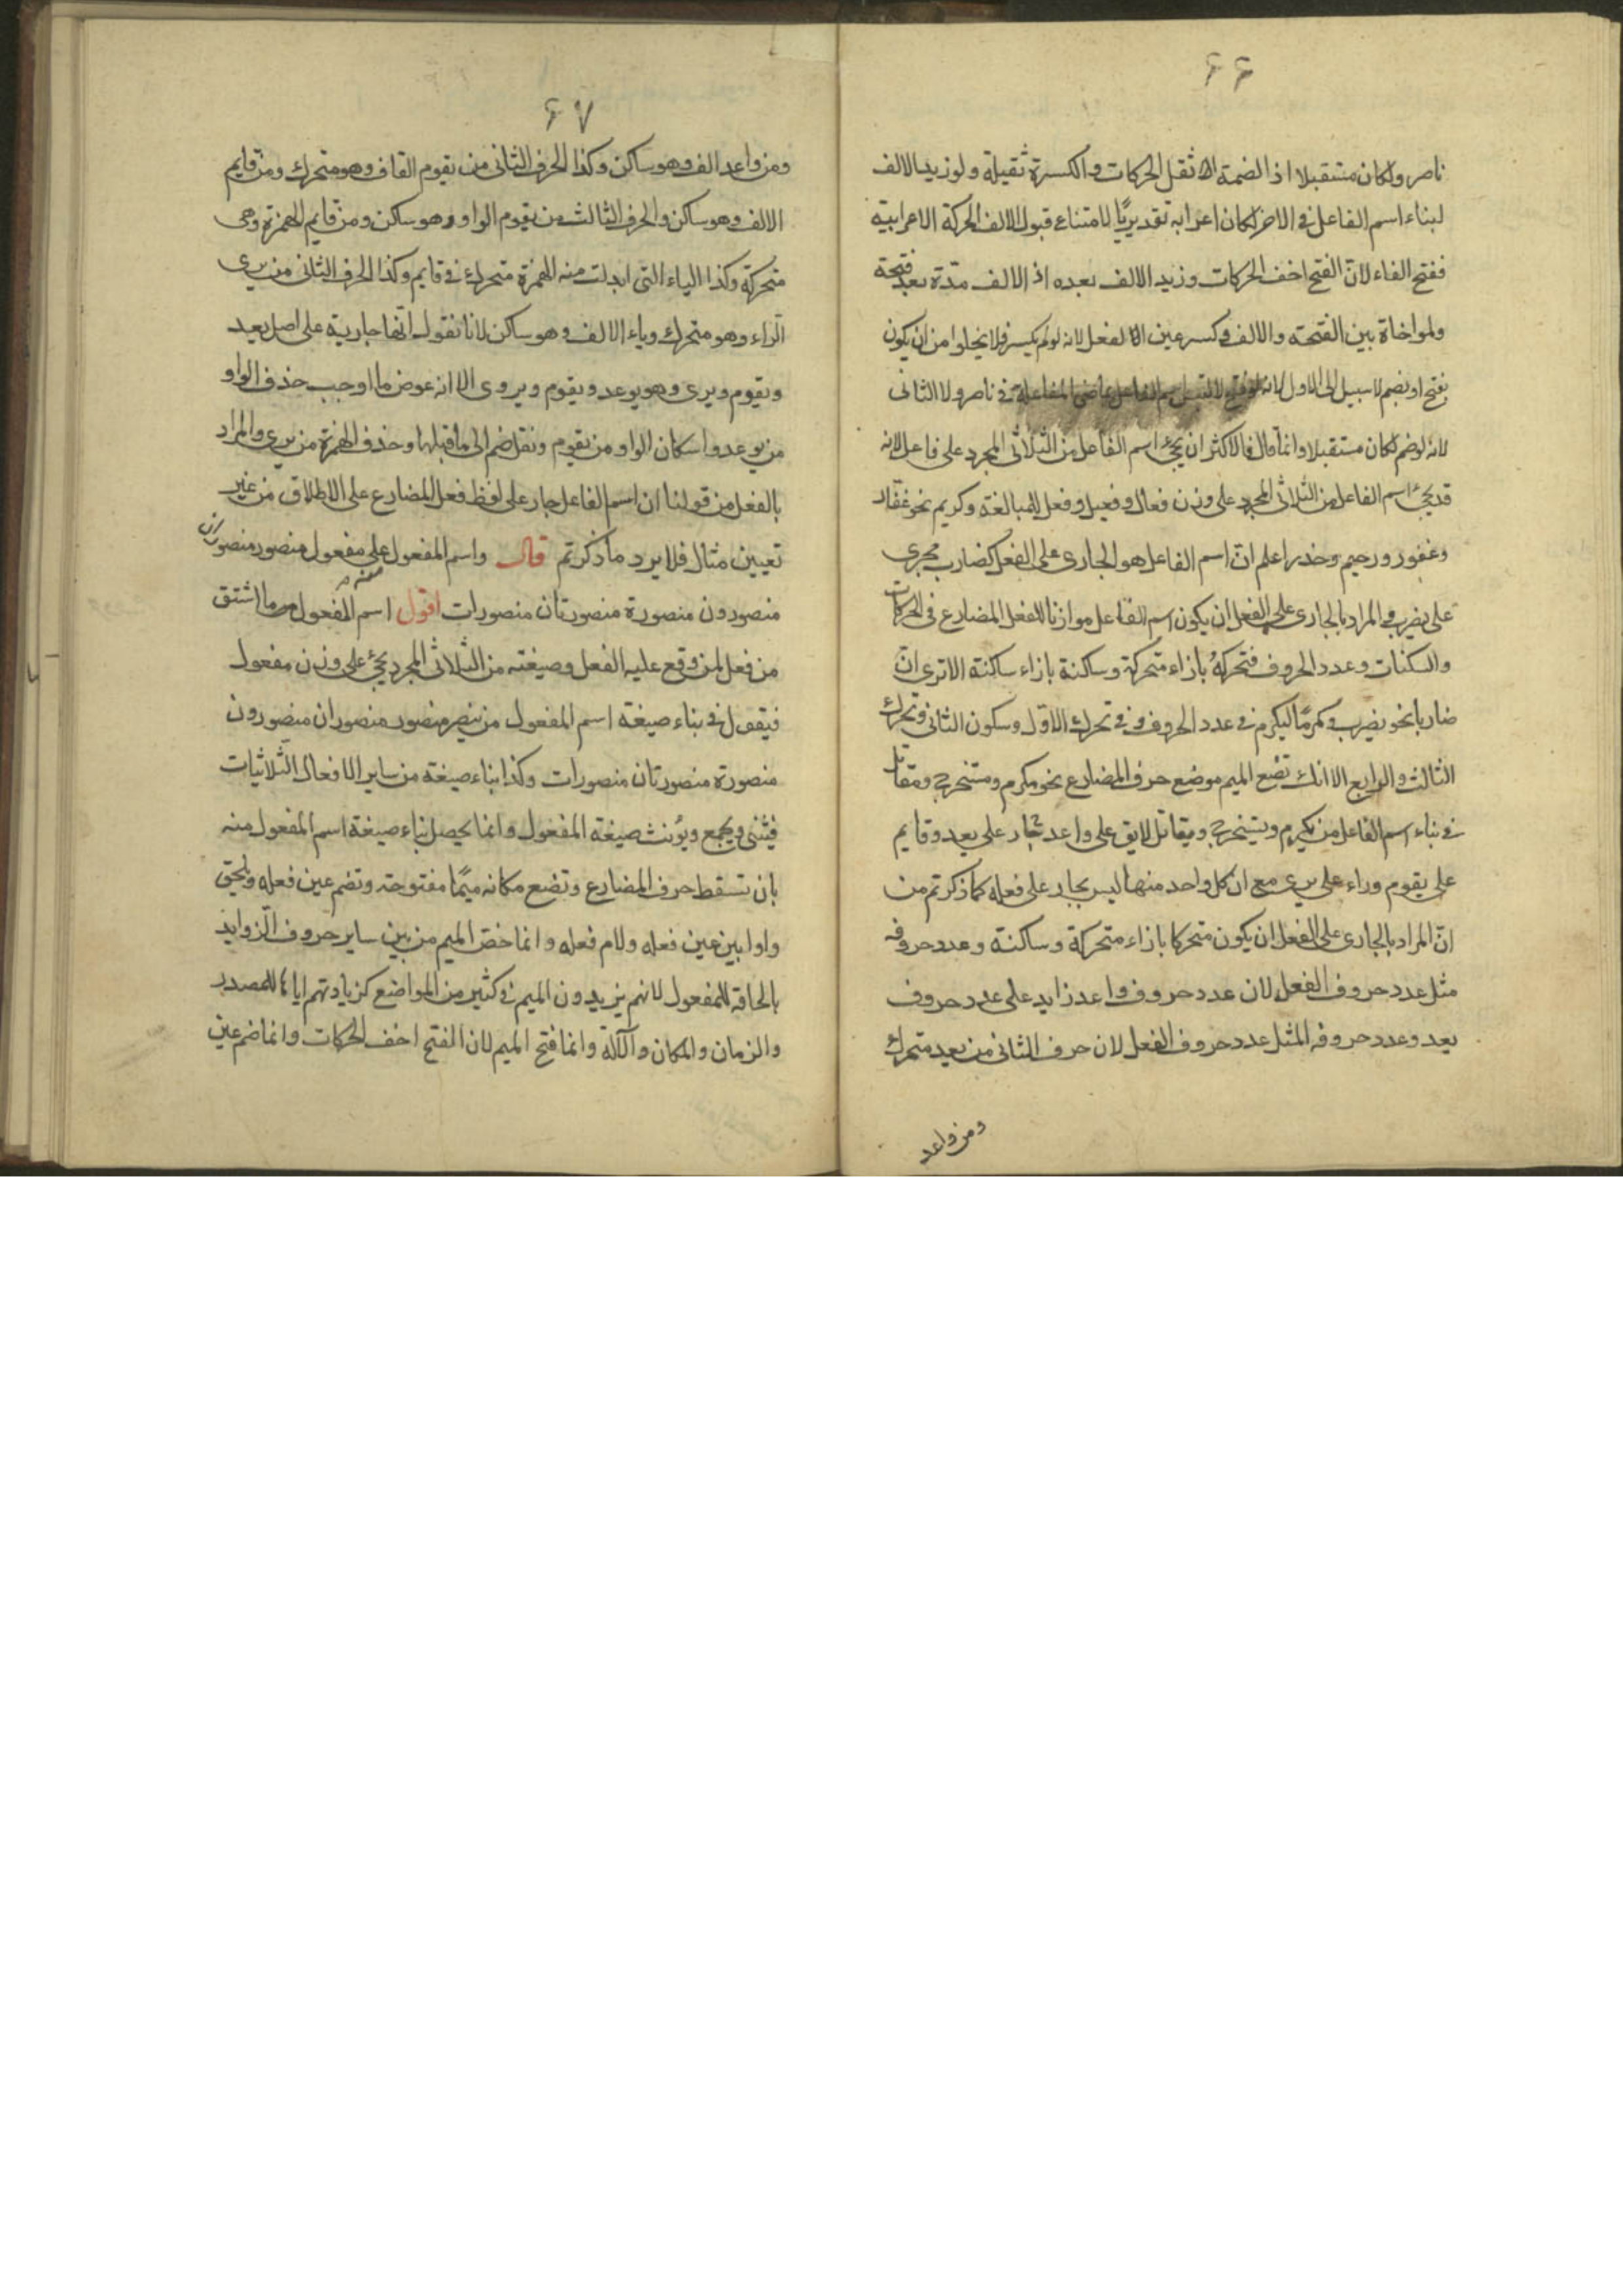 ۶۶
ناصر ولكان مستقبلا اذ الضمة اثقل الحركات والكسرة ثقيلة ولو زيد الالف
لبناء اسم الفاعل فى الاخر لكان اعرابه تقديريًا لامتناع قبول الالف الحركة الاعرابية
ففتح الفاء لانّ الفتح اخف الحركات وزيد الالف بعده اذ الالف مدّة بعد فتحة
ولمواخاة بين الفتحة والالف وكسر عين الفعل لانه لو لم يكسر فلا يخلوا من ان يكون
بفتح او بضم لا سبيل الى الاول لانه لو فتح لالتبس اسم الفاعل بماضى المفاعلة فى ناصر ولا الثانى
لانه لو ضم لكان مستقبلا وانما قال فالاكثر ان يجئ اسم الفاعل من الثلاثى المجرد على فاعل لانه
قد يجئ اسم الفاعل من الثلاثى المجرد على وزن فعال وفعيل وفعل للمبالغة وكريم نحو غفّار
وغفور ورحيم وحذر اعلم انّ اسم الفاعل هو الجارى على الفعل كضارب مجرى
على يضرب والمراد بالجارى على الفعل ان يكون اسم الفاعل موازنا للفعل المضارع فى الحركات
والسكنات وعدد الحروف فتحركةُ بازاء متحركة وساكنة بازاء ساكنة الاترى انّ
ضاربا نحو يضرب ومكرمًا ليكرم فى عدد الحروف وفى تحرك الاوّل وسكون الثانى وتحرك
الثالث والرابع الا انك تضع الميم موضع حرف المضارع نحو مكرم ومستخرج ومقاتل
فى بناء اسم الفاعل من يكرم ويستخرج ويقاتل لايق على واعد بجار على يعد وقايم
على يقوم وراء على يرى مع ان كل واحد منها ليس بجار على فعله كما ذكرتم من
انّ المراد بالجارى على الفعل ان يكون متحركا بازاء متحركة وساكنة وعدد حروفه
مثل عدد حروف الفعل لان عدد حروف واعد زايد على عدد حروف
يعد وعدد حروفه المثل عدد حروف الفعل لان حرف الثانى من يعد متحرك
ومن واعد
۶۷
ومن واعد الف وهو ساكن وكذا الحرف الثانى من يقوم القاف وهو متحرك ومن قايم
الالف وهو ساكن والحرف الثالث من يقوم الواو وهو ساكن ومن قايم الهمزة وهى
متحركة وكذا الياء التى ابدلت منه الهمزة متحرك فى قايم وكذا الحرف الثانى من يرى
الرّاء وهو متحرك وياء الالف وهو ساكن لانا نقول انّها جارية على اصل يعد
ويقوم ويرى وهو يوعد ويقوم ويروى الا انه عوض ما اوجب حذف الواو
من يوعد واسكان الواو من يقوم ونقل ضم الى ما قبلها وحذف الهمزة من يرى والمراد
بالفعل من قولنا ان اسم الفاعل جار على لفظ فعل المضارع على الاطلاق من غير
تعيين مثال فلا يرد ما ذكرتم قال واسم المفعول على مفعول منصور منصوران
منصورون منصورة منصورتان منصورات اقول اسم المفعول هو ما اشتق
من فعل لمن وقع عليه الفعل وصيغته من الثلاثى المجرد يجئ على وزن مفعول
فيقول فى بناء صيغة اسم المفعول من ينصر منصور منصوران منصورون
منصورة منصورتان منصورات وكذا بناء صيغة من ساير الافعال الثلاثيات
فيثنى ويجمع ويؤنث صيغة المفعول وانما يحصل بناء صيغة اسم المفعول منه
بان تسقط حرف المضارع وتضع مكانه ميمًا مفتوحة وتضم عين فعله وتلحق
واوا بين عين فعله ولام فعله وانما خصّ الميم من بين ساير حروف الزوايد
بالحاقه للمفعول لانهم يزيدون الميم فى كثير من المواضع كزيادتهم اياها للمصدر
والزمان والمكان والآلة وانما فتح الميم لان الفتح اخف الحركات وانما ضم عين